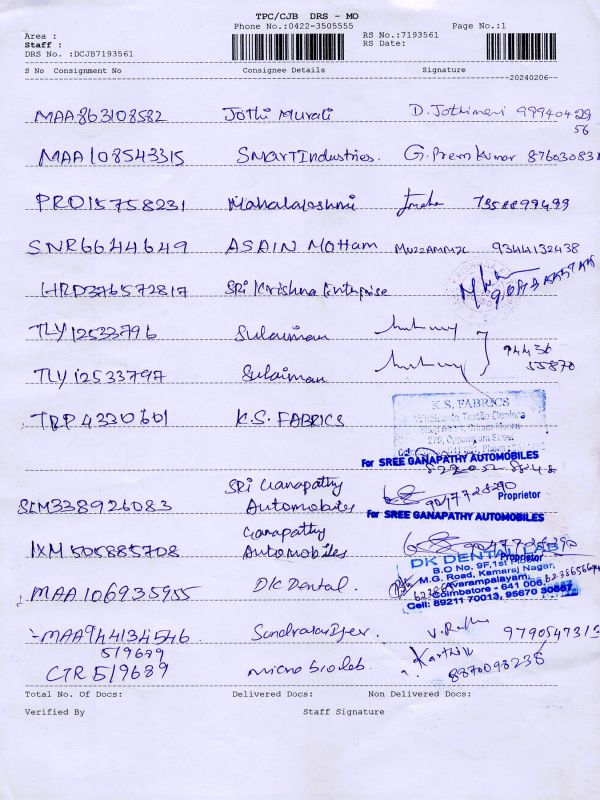 TPC/CJB DRS - MO
Phone No.:0422-3505555
Page No.:1
Area :
Staff :
DRS No. :DCJB7193561
RS No.:7193561
RS Date:
S No Consignment No Consignee Details Signature
20240206
MAA863108582 Jothi Murali D. Jothimani 9994042956
MAA108543315 SMart Industries. G. Prem Kumar 876030831
PRD15758231 Mahalakshmi 7958899499
SNR6644649 ASAIN MOttam MUZZAMMIL 9344132438
HRD376572817 SRi Krishna Enterprise
TLY12533796 Sulaiman
94436 55870
TLY12533797 Sulaiman
TRP4330601 K.S. FABRICS
K.S. FABRICS
Wholesale Textile Dealers
For SREE GANAPATHY AUTOMOBILES
SLM338926083 SRi Ganapathy Automobiles
Proprietor
For SREE GANAPATHY AUTOMOBILES
IXM505885708 Ganapathy Automobiles
Proprietor
DK DENTAL LAB
B.O No. 9F, 1st Floor
M.G. Road, Kamaraj Nagar,
Avarampalayam,
Coimbatore - 641 006.
Cell: 89211 70013, 95670 30887
MAA106935955 DK Dental.
MAA944134546 9790547313
519689
CTR519689 micro biolab. Karthik 8870098238
Total No. Of Docs: Delivered Docs: Non Delivered Docs:
Verified By Staff Signature